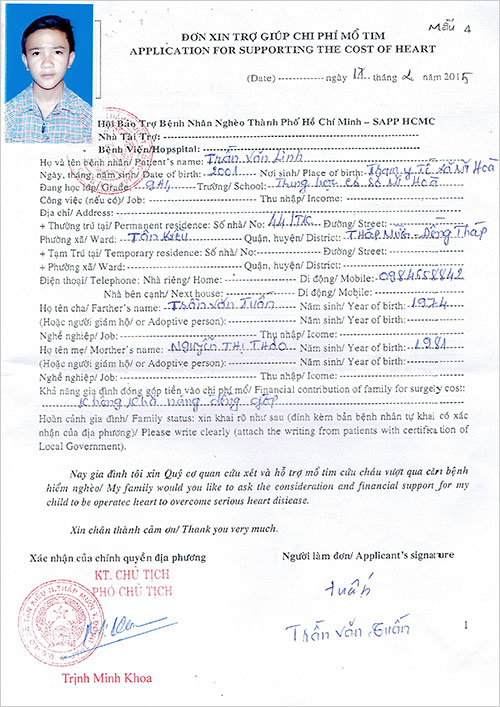 Mẫu 4
ĐƠN XIN TRỢ GIÚP CHI PHÍ MỔ TIM
APPLICATION FOR SUPPORTING THE COST OF HEART
(Date) ------------- ngày 12 --- tháng 2 năm 2015
Hội Bảo Trợ Bệnh Nhân Nghèo Thành Phố Hồ Chí Minh – SAPP HCMC
Nhà Tài Trợ:
Bệnh Viện/Hopspital:
Họ và tên bệnh nhân/ Patient's name: Trần Văn Linh
Ngày, tháng, năm sinh/ Date of birth: 2001 Nơi sinh/ Place of birth: Trạm y Tế xã Mĩ Hoà
Đang học lớp/ Grade: 9A4 Trường/ School: Trung học cơ sở Mĩ Hoà
Công việc (nếu có)/ Job: Thu nhập/ Income:
Địa chỉ/ Address:
+ Thường trú tại/ Permanent residence: Số nhà/ No: 441/TK Đường/ Street:
Phường xã/ Ward: Tân Kiều Quận, huyện/ District: Tháp Mười - Đồng Tháp
+ Tạm Trú tại/ Temporary residence: Số nhà/ No: Đường/ Street:
+ Phường xã/ Ward: Quận, huyện/ District:
Điện thoại/ Telephone: Nhà riêng/ Home: Di động/ Mobile: 0984658842
Nhà bên cạnh/ Next house: Di động/ Mobile:
Họ tên cha/ Farther's name: Trần Văn Tuấn Năm sinh/ Year of birth: 1974
(Hoặc người giám hộ/ or Adoptive person): Năm sinh/ Year of birth:
Nghề nghiệp/ Job: Thu nhập/ Icome:
Họ tên mẹ/ Morther's name: Nguyễn Thị Thảo Năm sinh/ Year of birth: 1981
(Hoặc người giám hộ/ or Adoptive person): Năm sinh/ Year of birth:
Nghề nghiệp/ Job: Thu nhập/ Income:
Khả năng gia đình đóng góp tiền vào chi phí mổ/ Financial contribution of family for surgely cost:
không khả năng đóng góp
Hoàn cảnh gia đình/ Family status: xin khai rõ như sau (đính kèm bản bệnh nhân tự khai có xác
nhận của địa phương)/ Please write clearly (attach the writing from patients with certification of
Local Government).
Nay gia đình tôi xin Quý cơ quan cứu xét và hỗ trợ mổ tim cứu cháu vượt qua căn bệnh
hiểm nghèo/ My family would you like to ask the consideration and financial support for my
child to be operatec heart to overcome serious heart disiease.
Xin chân thành cảm ơn/ Thank you very much.
Xác nhận của chính quyền địa phương Người làm đơn/ Applicant's signature
KT. CHỦ TỊCH
PHÓ CHỦ TỊCH
tuấn
Trần Văn Tuấn
1
Trịnh Minh Khoa